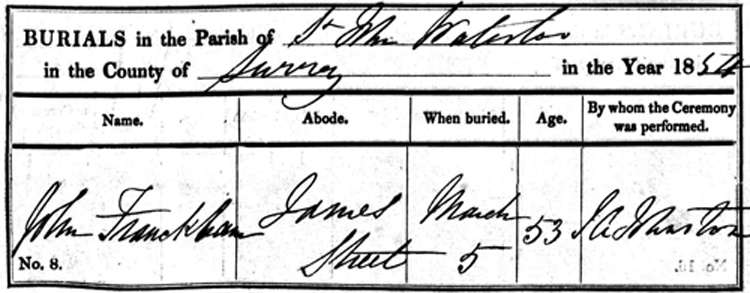 BURIALS in the Parish of St John Waterloo
in the County of Surrey in the Year 1854
Name. Abode. When buried. Age. By whom the Ceremony was performed.
John Franckham James Street March 5 53 J A Johnston
No. 8.